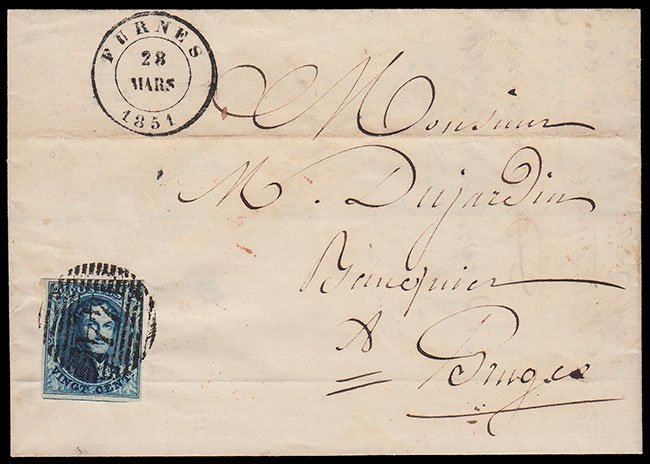 FURNES
28
MARS
1851
Monsieur
M. Dujardin
Banquier
A
Bruges
VINGT CENT